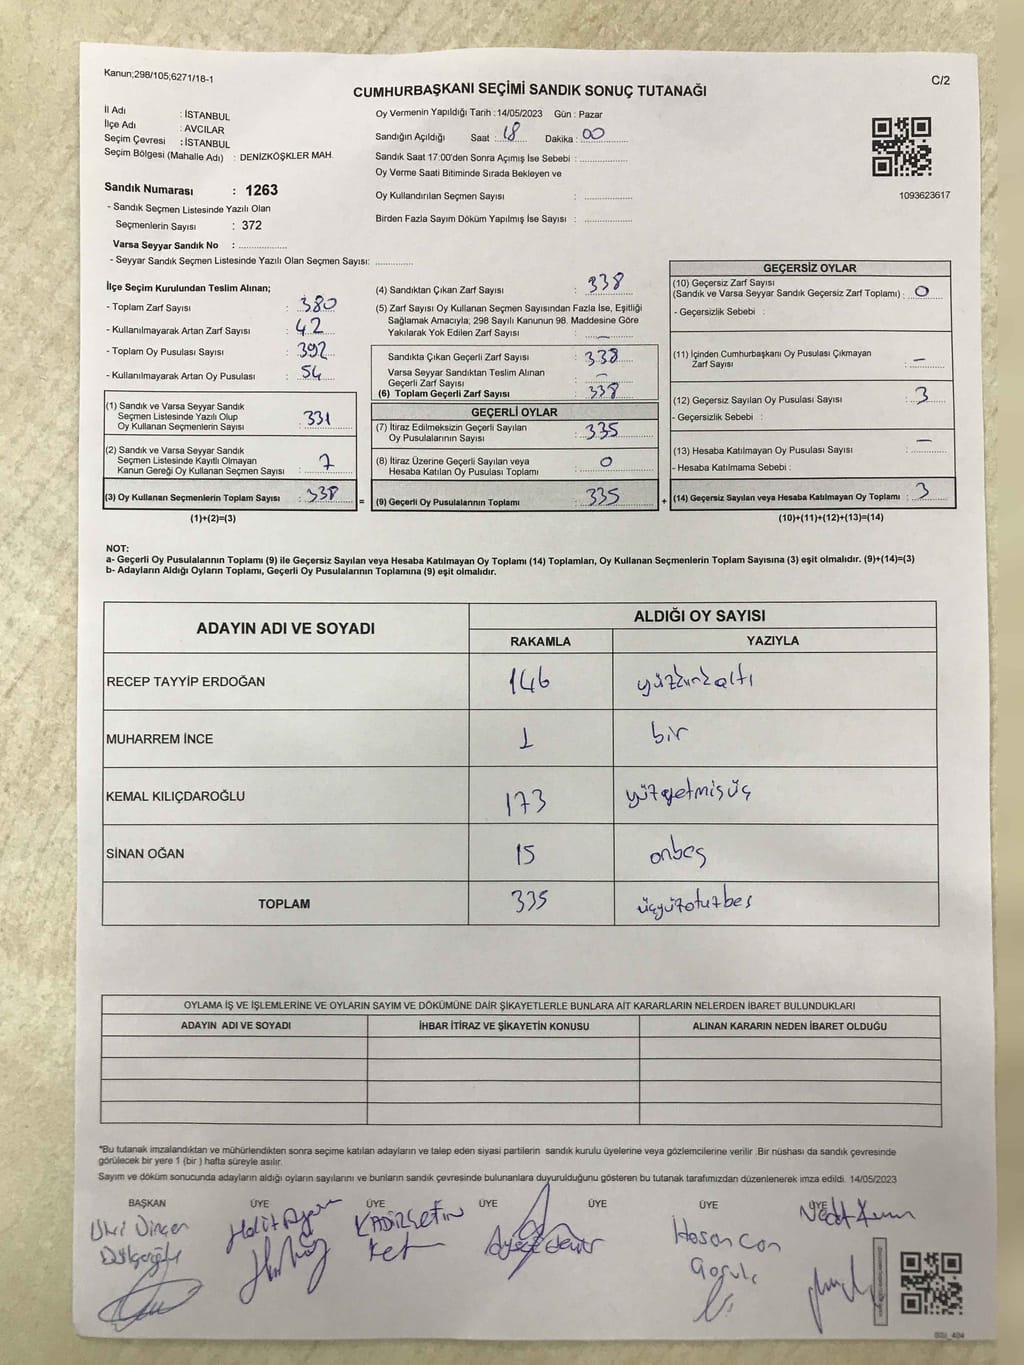 Kanun;298/105;6271/18-1
C/2
CUMHURBAŞKANI SEÇİMİ SANDIK SONUÇ TUTANAĞI
İl Adı : İSTANBUL
İlçe Adı : AVCILAR
Seçim Çevresi : İSTANBUL
Seçim Bölgesi (Mahalle Adı) : DENİZKÖŞKLER MAH.
Sandık Numarası : 1263
- Sandık Seçmen Listesinde Yazılı Olan
Seçmenlerin Sayısı : 372
Varsa Seyyar Sandık No : ................
- Seyyar Sandık Seçmen Listesinde Yazılı Olan Seçmen Sayısı: .............
Oy Vermenin Yapıldığı Tarih :14/05/2023 Gün : Pazar
Sandığın Açıldığı Saat : 18 Dakika : 00
Sandık Saat 17:00'den Sonra Açımış İse Sebebi : ................
Oy Verme Saati Bitiminde Sırada Bekleyen ve
Oy Kullandırılan Seçmen Sayısı : ................
Birden Fazla Sayım Döküm Yapılmış İse Sayısı : ................
1093623617
İlçe Seçim Kurulundan Teslim Alınan;
- Toplam Zarf Sayısı : 380
- Kullanılmayarak Artan Zarf Sayısı : 42
- Toplam Oy Pusulası Sayısı : 392
- Kullanılmayarak Artan Oy Pusulası : 54
(1) Sandık ve Varsa Seyyar Sandık
Seçmen Listesinde Yazılı Olup
Oy Kullanan Seçmenlerin Sayısı : 331
(2) Sandık ve Varsa Seyyar Sandık
Seçmen Listesinde Kayıtlı Olmayan
Kanun Gereği Oy Kullanan Seçmen Sayısı : 7
(3) Oy Kullanan Seçmenlerin Toplam Sayısı : 338 =
(1)+(2)=(3)
(4) Sandıktan Çıkan Zarf Sayısı : 338
(5) Zarf Sayısı Oy Kullanan Seçmen Sayısından Fazla İse, Eşitliği
Sağlamak Amacıyla; 298 Sayılı Kanunun 98. Maddesine Göre
Yakılarak Yok Edilen Zarf Sayısı : —
Sandıkta Çıkan Geçerli Zarf Sayısı : 338
Varsa Seyyar Sandıktan Teslim Alınan
Geçerli Zarf Sayısı : —
(6) Toplam Geçerli Zarf Sayısı : 338
GEÇERLİ OYLAR
(7) İtiraz Edilmeksizin Geçerli Sayılan
Oy Pusulalarının Sayısı : 335
(8) İtiraz Üzerine Geçerli Sayılan veya
Hesaba Katılan Oy Pusulası Toplamı : 0
(9) Geçerli Oy Pusulalarının Toplamı : 335 +
GEÇERSİZ OYLAR
(10) Geçersiz Zarf Sayısı
(Sandık ve Varsa Seyyar Sandık Geçersiz Zarf Toplamı) : 0
- Geçersizlik Sebebi :
(11) İçinden Cumhurbaşkanı Oy Pusulası Çıkmayan
Zarf Sayısı : —
(12) Geçersiz Sayılan Oy Pusulası Sayısı : 3
- Geçersizlik Sebebi :
(13) Hesaba Katılmayan Oy Pusulası Sayısı : —
- Hesaba Katılmama Sebebi :
(14) Geçersiz Sayılan veya Hesaba Katılmayan Oy Toplamı : 3
(10)+(11)+(12)+(13)=(14)
NOT:
a- Geçerli Oy Pusulalarının Toplamı (9) ile Geçersiz Sayılan veya Hesaba Katılmayan Oy Toplamı (14) Toplamları, Oy Kullanan Seçmenlerin Toplam Sayısına (3) eşit olmalıdır. (9)+(14)=(3)
b- Adayların Aldığı Oyların Toplamı, Geçerli Oy Pusulalarının Toplamına (9) eşit olmalıdır.
ADAYIN ADI VE SOYADI
ALDIĞI OY SAYISI
RAKAMLA YAZIYLA
RECEP TAYYİP ERDOĞAN 146 yüzkırkaltı
MUHARREM İNCE 1 bir
KEMAL KILIÇDAROĞLU 173 yüzyetmişüç
SİNAN OĞAN 15 onbeş
TOPLAM 335 üçyüzotuzbeş
OYLAMA İŞ VE İŞLEMLERİNE VE OYLARIN SAYIM VE DÖKÜMÜNE DAİR ŞİKAYETLERLE BUNLARA AİT KARARLARIN NELERDEN İBARET BULUNDUKLARI
ADAYIN ADI VE SOYADI İHBAR İTİRAZ VE ŞİKAYETİN KONUSU ALINAN KARARIN NEDEN İBARET OLDUĞU
*Bu tutanak imzalandıktan ve mühürlendikten sonra seçime katılan adayların ve talep eden siyasi partilerin sandık kurulu üyelerine veya gözlemcilerine verilir .Bir nüshası da sandık çevresinde
görülecek bir yere 1 (bir ) hafta süreyle asılır.
Sayım ve döküm sonucunda adayların aldığı oyların sayılarını ve bunların sandık çevresinde bulunanlara duyurulduğunu gösteren bu tutanak tarafımızdan düzenlenerek imza edildi. 14/05/2023
BAŞKAN ÜYE ÜYE ÜYE ÜYE ÜYE ÜYE
KADİR ÇETİN
Hasan Can